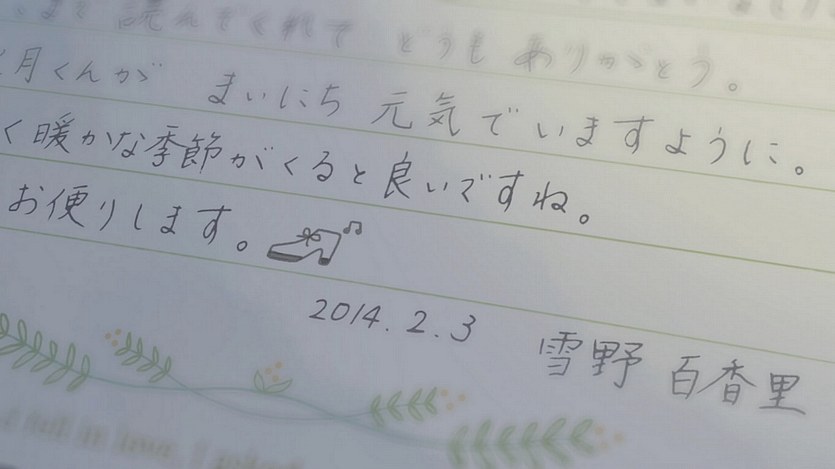 読んでくれて どうも ありがとう。
月くんが まいにち 元気でいますように。
く暖かな季節がくると良いですね。
お便りします。
2014.2.3
雪野 百香里